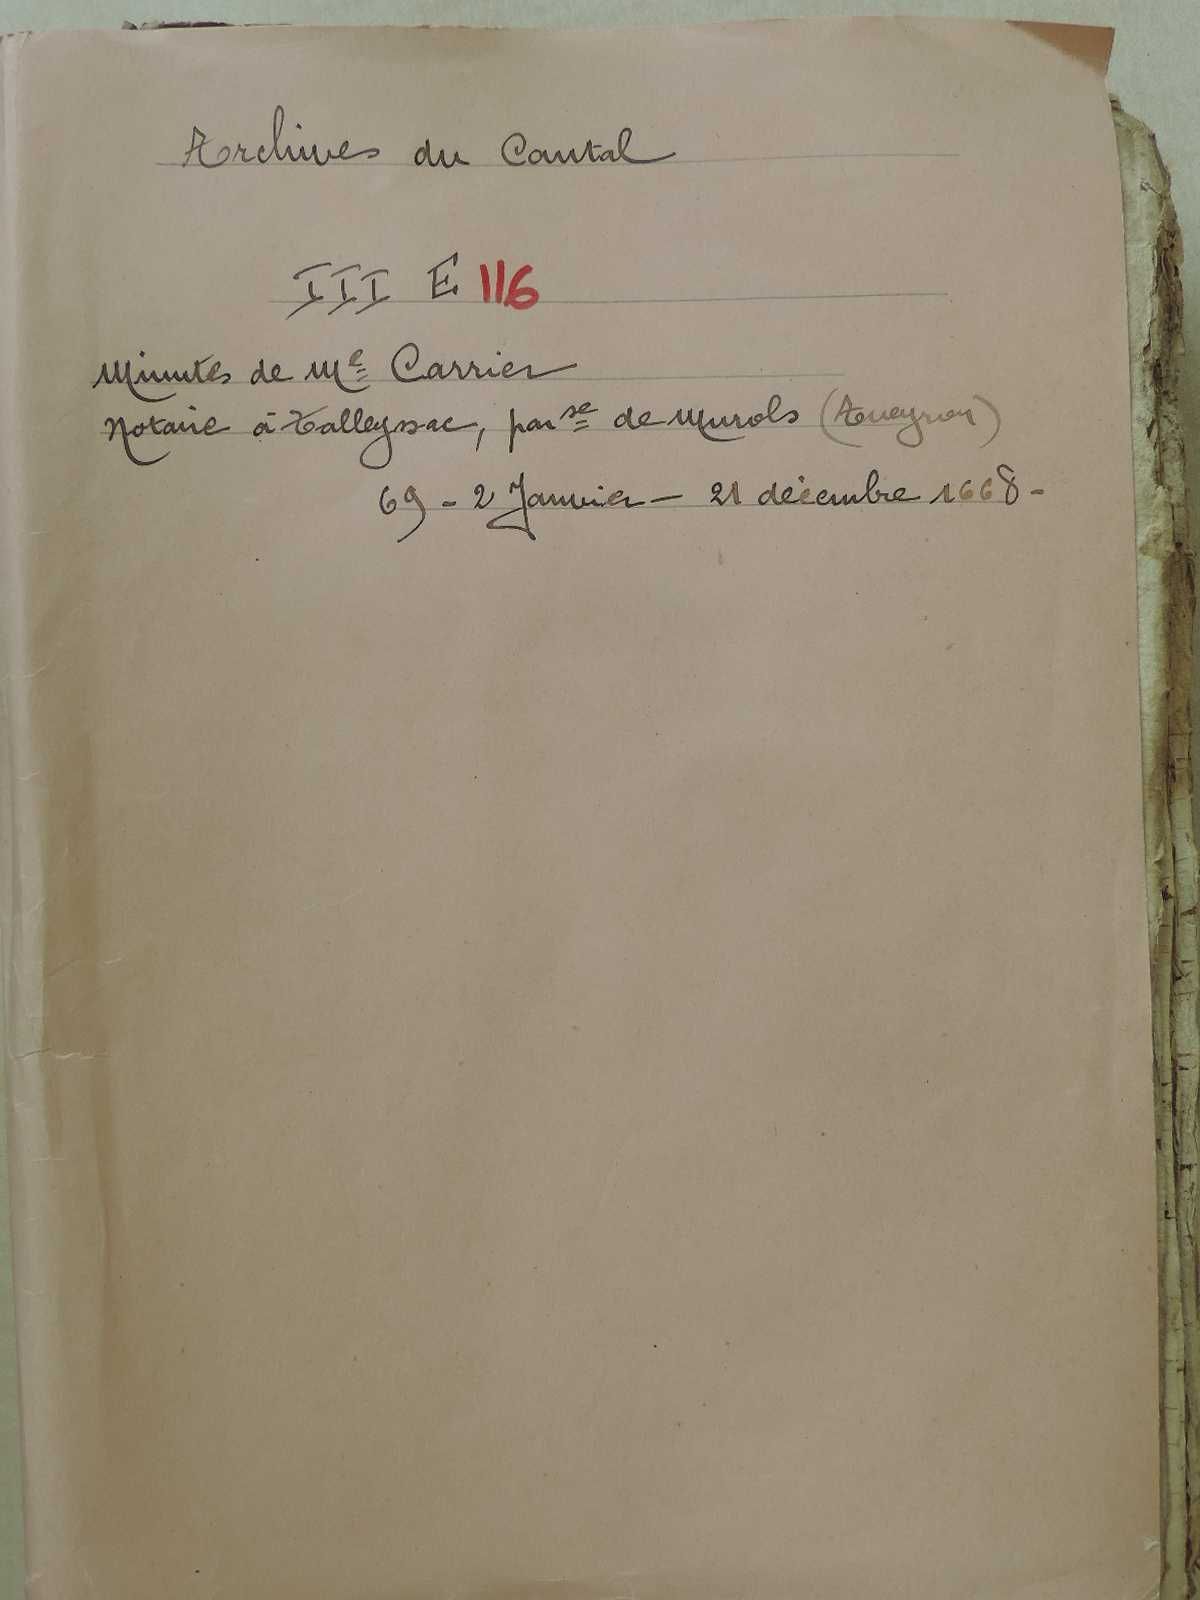 Archives du Cantal
III E 116
Minutes de Me Carrier
Notaire à Talleyssac, parse de Murols (Aveyron)
69 - 2 Janvier - 21 décembre 1668 -